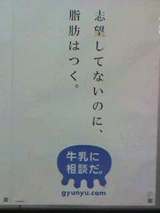 志望してないのに、
脂肪はつく。
牛乳に
相談だ。
gyunyu.com